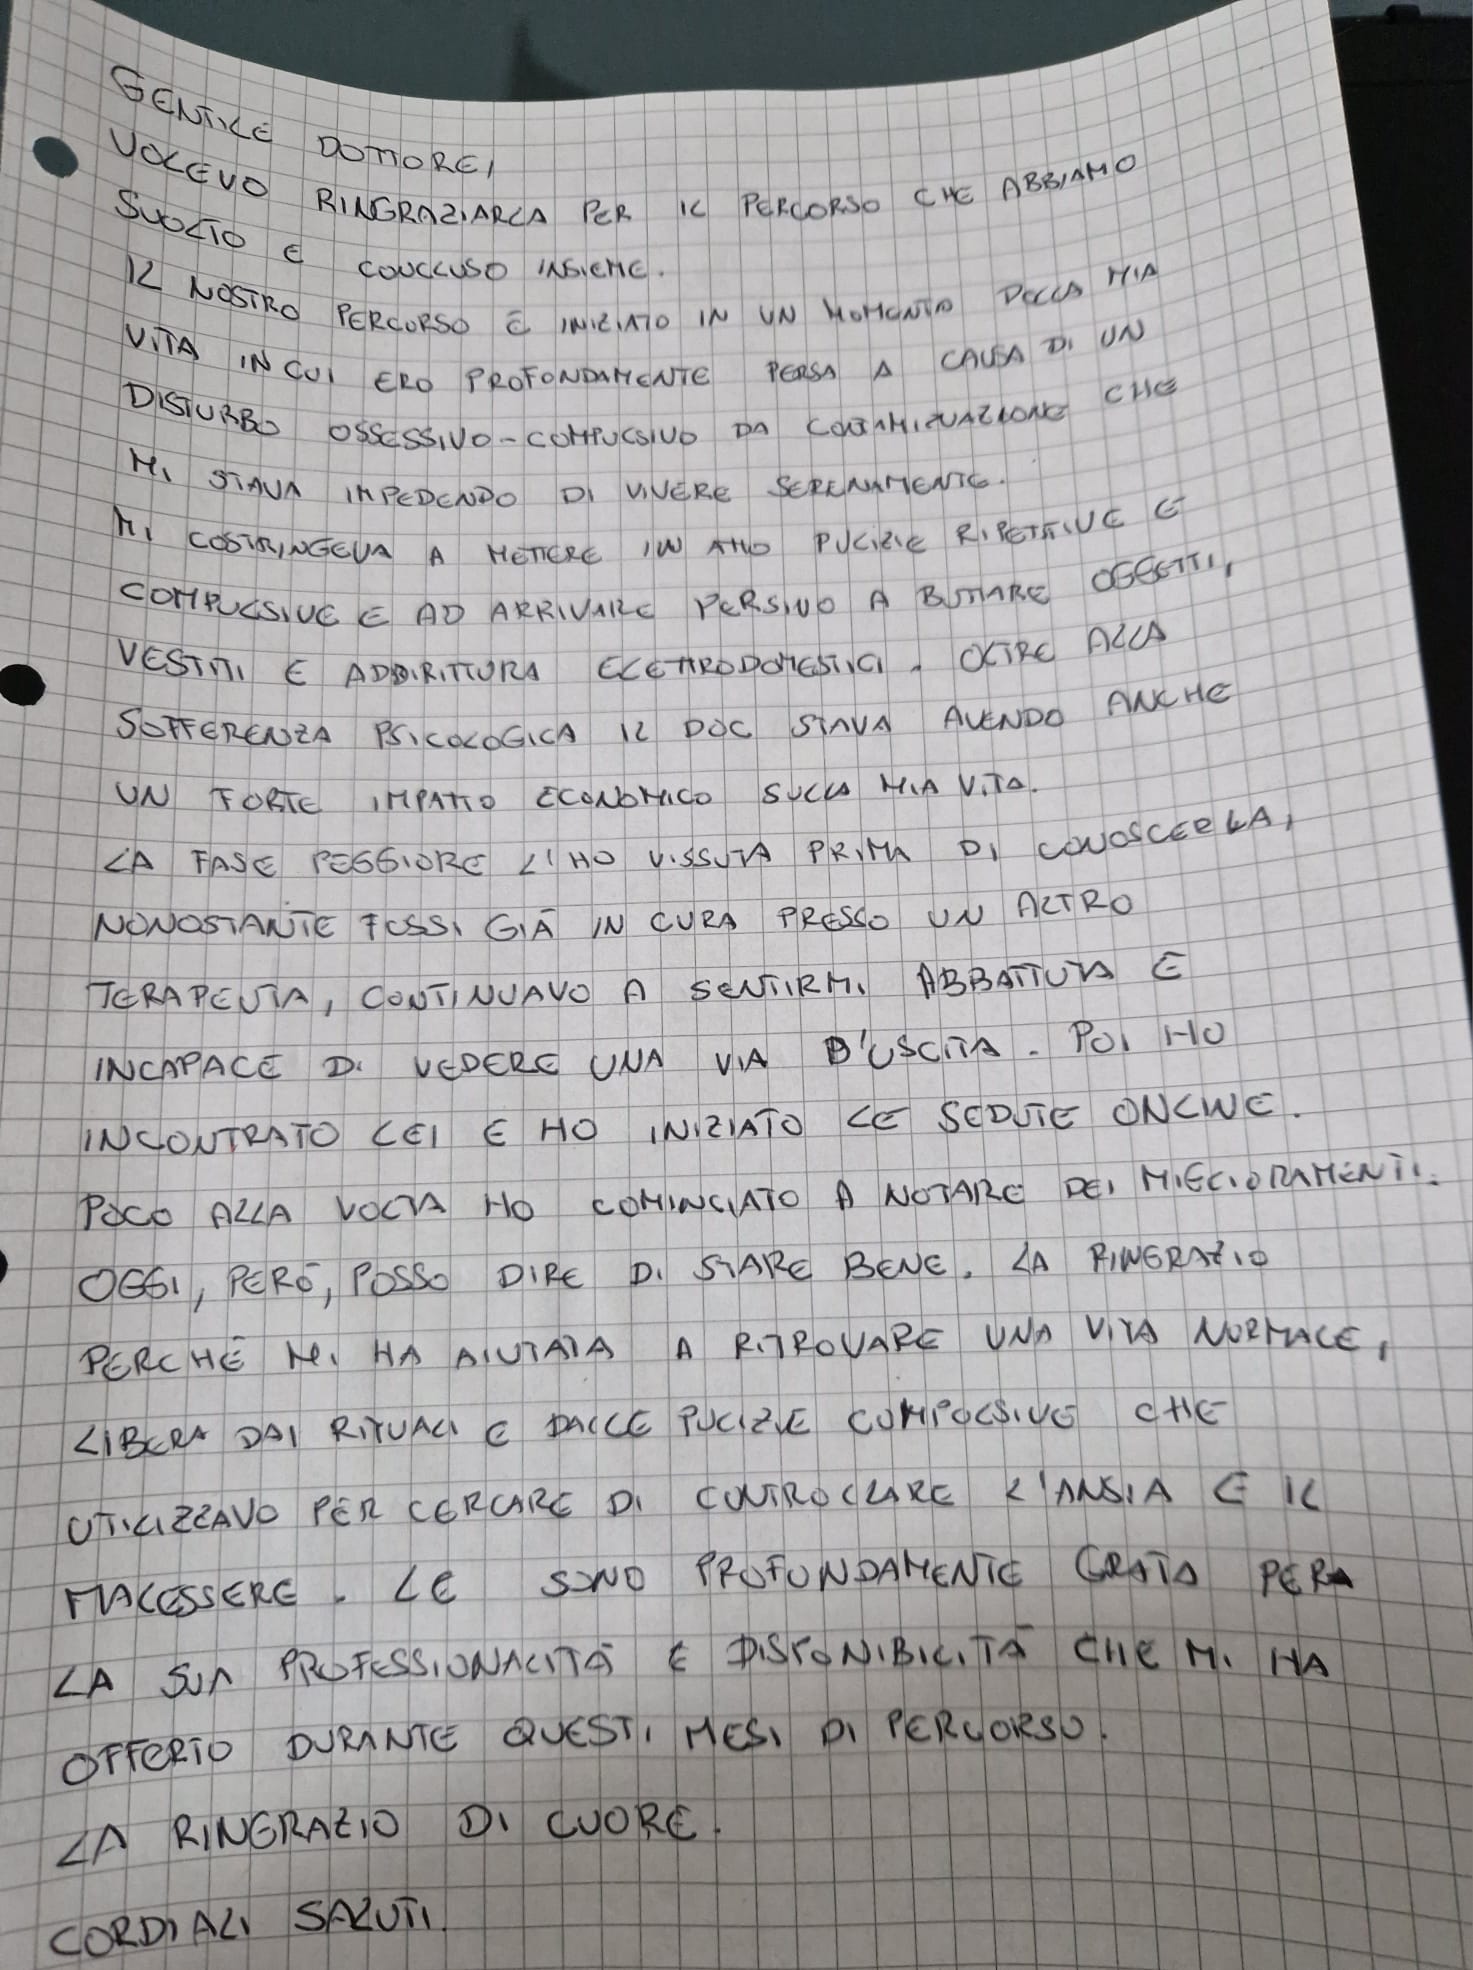 GENTILE DOTTORE,
VOLEVO RINGRAZIARLA PER IL PERCORSO CHE ABBIAMO
SVOLTO E CONCLUSO INSIEME.
IL NOSTRO PERCORSO È INIZIATO IN UN MOMENTO DELLA MIA
VITA IN CUI ERO PROFONDAMENTE PERSA A CAUSA DI UN
DISTURBO OSSESSIVO-COMPULSIVO DA CONTAMINAZIONE CHE
MI STAVA IMPEDENDO DI VIVERE SERENAMENTE.
MI COSTRINGEVA A METTERE IN ATTO PULIZIE RIPETITIVE E
COMPULSIVE E AD ARRIVARE PERSINO A BUTTARE OGGETTI,
VESTITI E ADDIRITTURA ELETTRODOMESTICI. OLTRE ALLA
SOFFERENZA PSICOLOGICA IL DOC STAVA AVENDO ANCHE
UN FORTE IMPATTO ECONOMICO SULLA MIA VITA.
LA FASE PEGGIORE L'HO VISSUTA PRIMA DI CONOSCERLA,
NONOSTANTE FOSSI GIÀ IN CURA PRESSO UN ALTRO
TERAPEUTA, CONTINUAVO A SENTIRMI ABBATTUTA E
INCAPACE DI VEDERE UNA VIA D'USCITA. POI HO
INCONTRATO LEI E HO INIZIATO LE SEDUTE ONLINE.
POCO ALLA VOLTA HO COMINCIATO A NOTARE DEI MIGLIORAMENTI.
OGGI, PERÒ, POSSO DIRE DI STARE BENE. LA RINGRAZIO
PERCHÉ MI HA AIUTATA A RITROVARE UNA VITA NORMALE,
LIBERA DAI RITUALI E DALLE PULIZIE COMPULSIVE CHE
UTILIZZAVO PER CERCARE DI CONTROLLARE L'ANSIA E IL
MALESSERE. LE SONO PROFONDAMENTE GRATA PER
LA SUA PROFESSIONALITÀ E DISPONIBILITÀ CHE MI HA
OFFERTO DURANTE QUESTI MESI DI PERCORSO.
LA RINGRAZIO DI CUORE.
CORDIALI SALUTI.